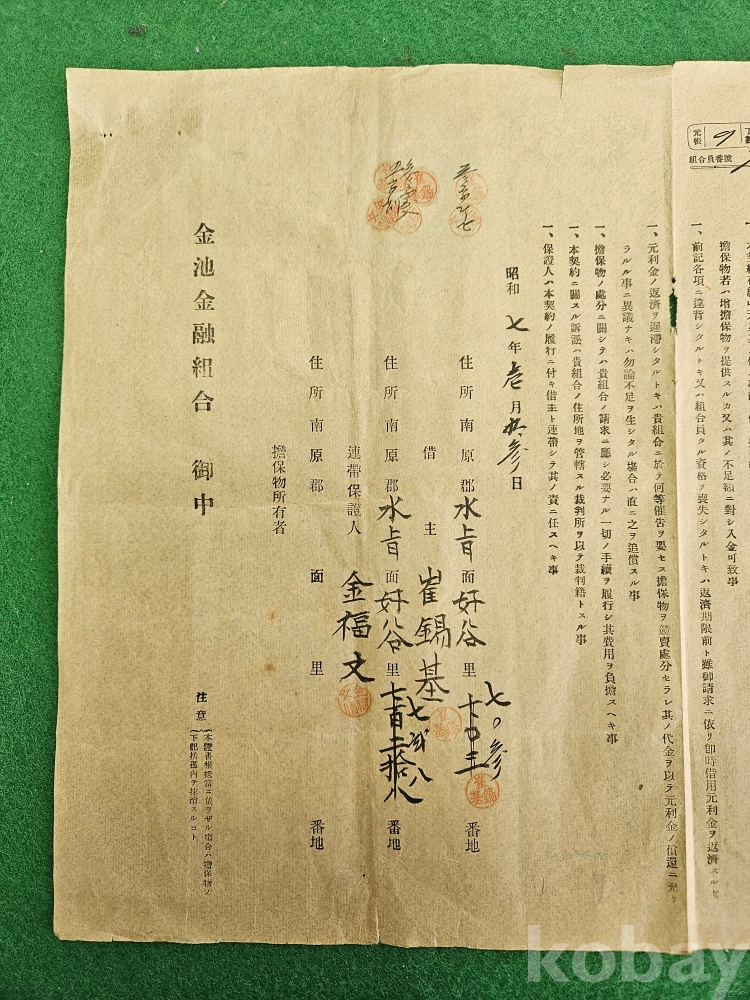 元帳
9
組合員番號
擔保物若ハ增擔保物ヲ提供スルカ又ハ其ノ不足額ニ對シ入金可致事
一、前記各項ニ違背シタルトキ又ハ組合員タル資格ヲ喪失シタルトキハ返濟期限前ト雖御請求ニ依リ卽時借用元利金ヲ返濟スルモ
一、元利金ノ返濟ヲ遲滯シタルトキハ貴組合ニ於テ何等催告ヲ要セス擔保物ヲ競賣處分セラレ其ノ代金ヲ以テ元利金ノ償還ニ充テ
ラルル事ニ異議ナキハ勿論不足ヲ生シタル塲合ハ直ニ之ヲ追償スル事
一、擔保物ノ處分ニ關シテハ貴組合ノ請求ニ應シ必要ナル一切ノ手續ヲ履行シ其費用ヲ負擔スヘキ事
一、本契約ニ關スル訴訟ハ貴組合ノ住所地ヲ管轄スル裁判所ヲ以テ裁判籍トスル事
一、保證人ハ本契約ノ履行ニ付キ借主ト連帶シテ其ノ責ニ任スヘキ事
昭和七年壱月拾参日
住所南原郡水旨面好谷里七〇参番地
借主 崔錫基
住所南原郡水旨面好谷里七貳八番地
連帶保證人 金福文
住所南原郡 面 里 番地
擔保物所有者
金池金融組合 御中
注意
本證書根抵當ニ依ラザル塲合ハ擔保物ノ
下記括弧內ヲ抹消スルコト
kobay